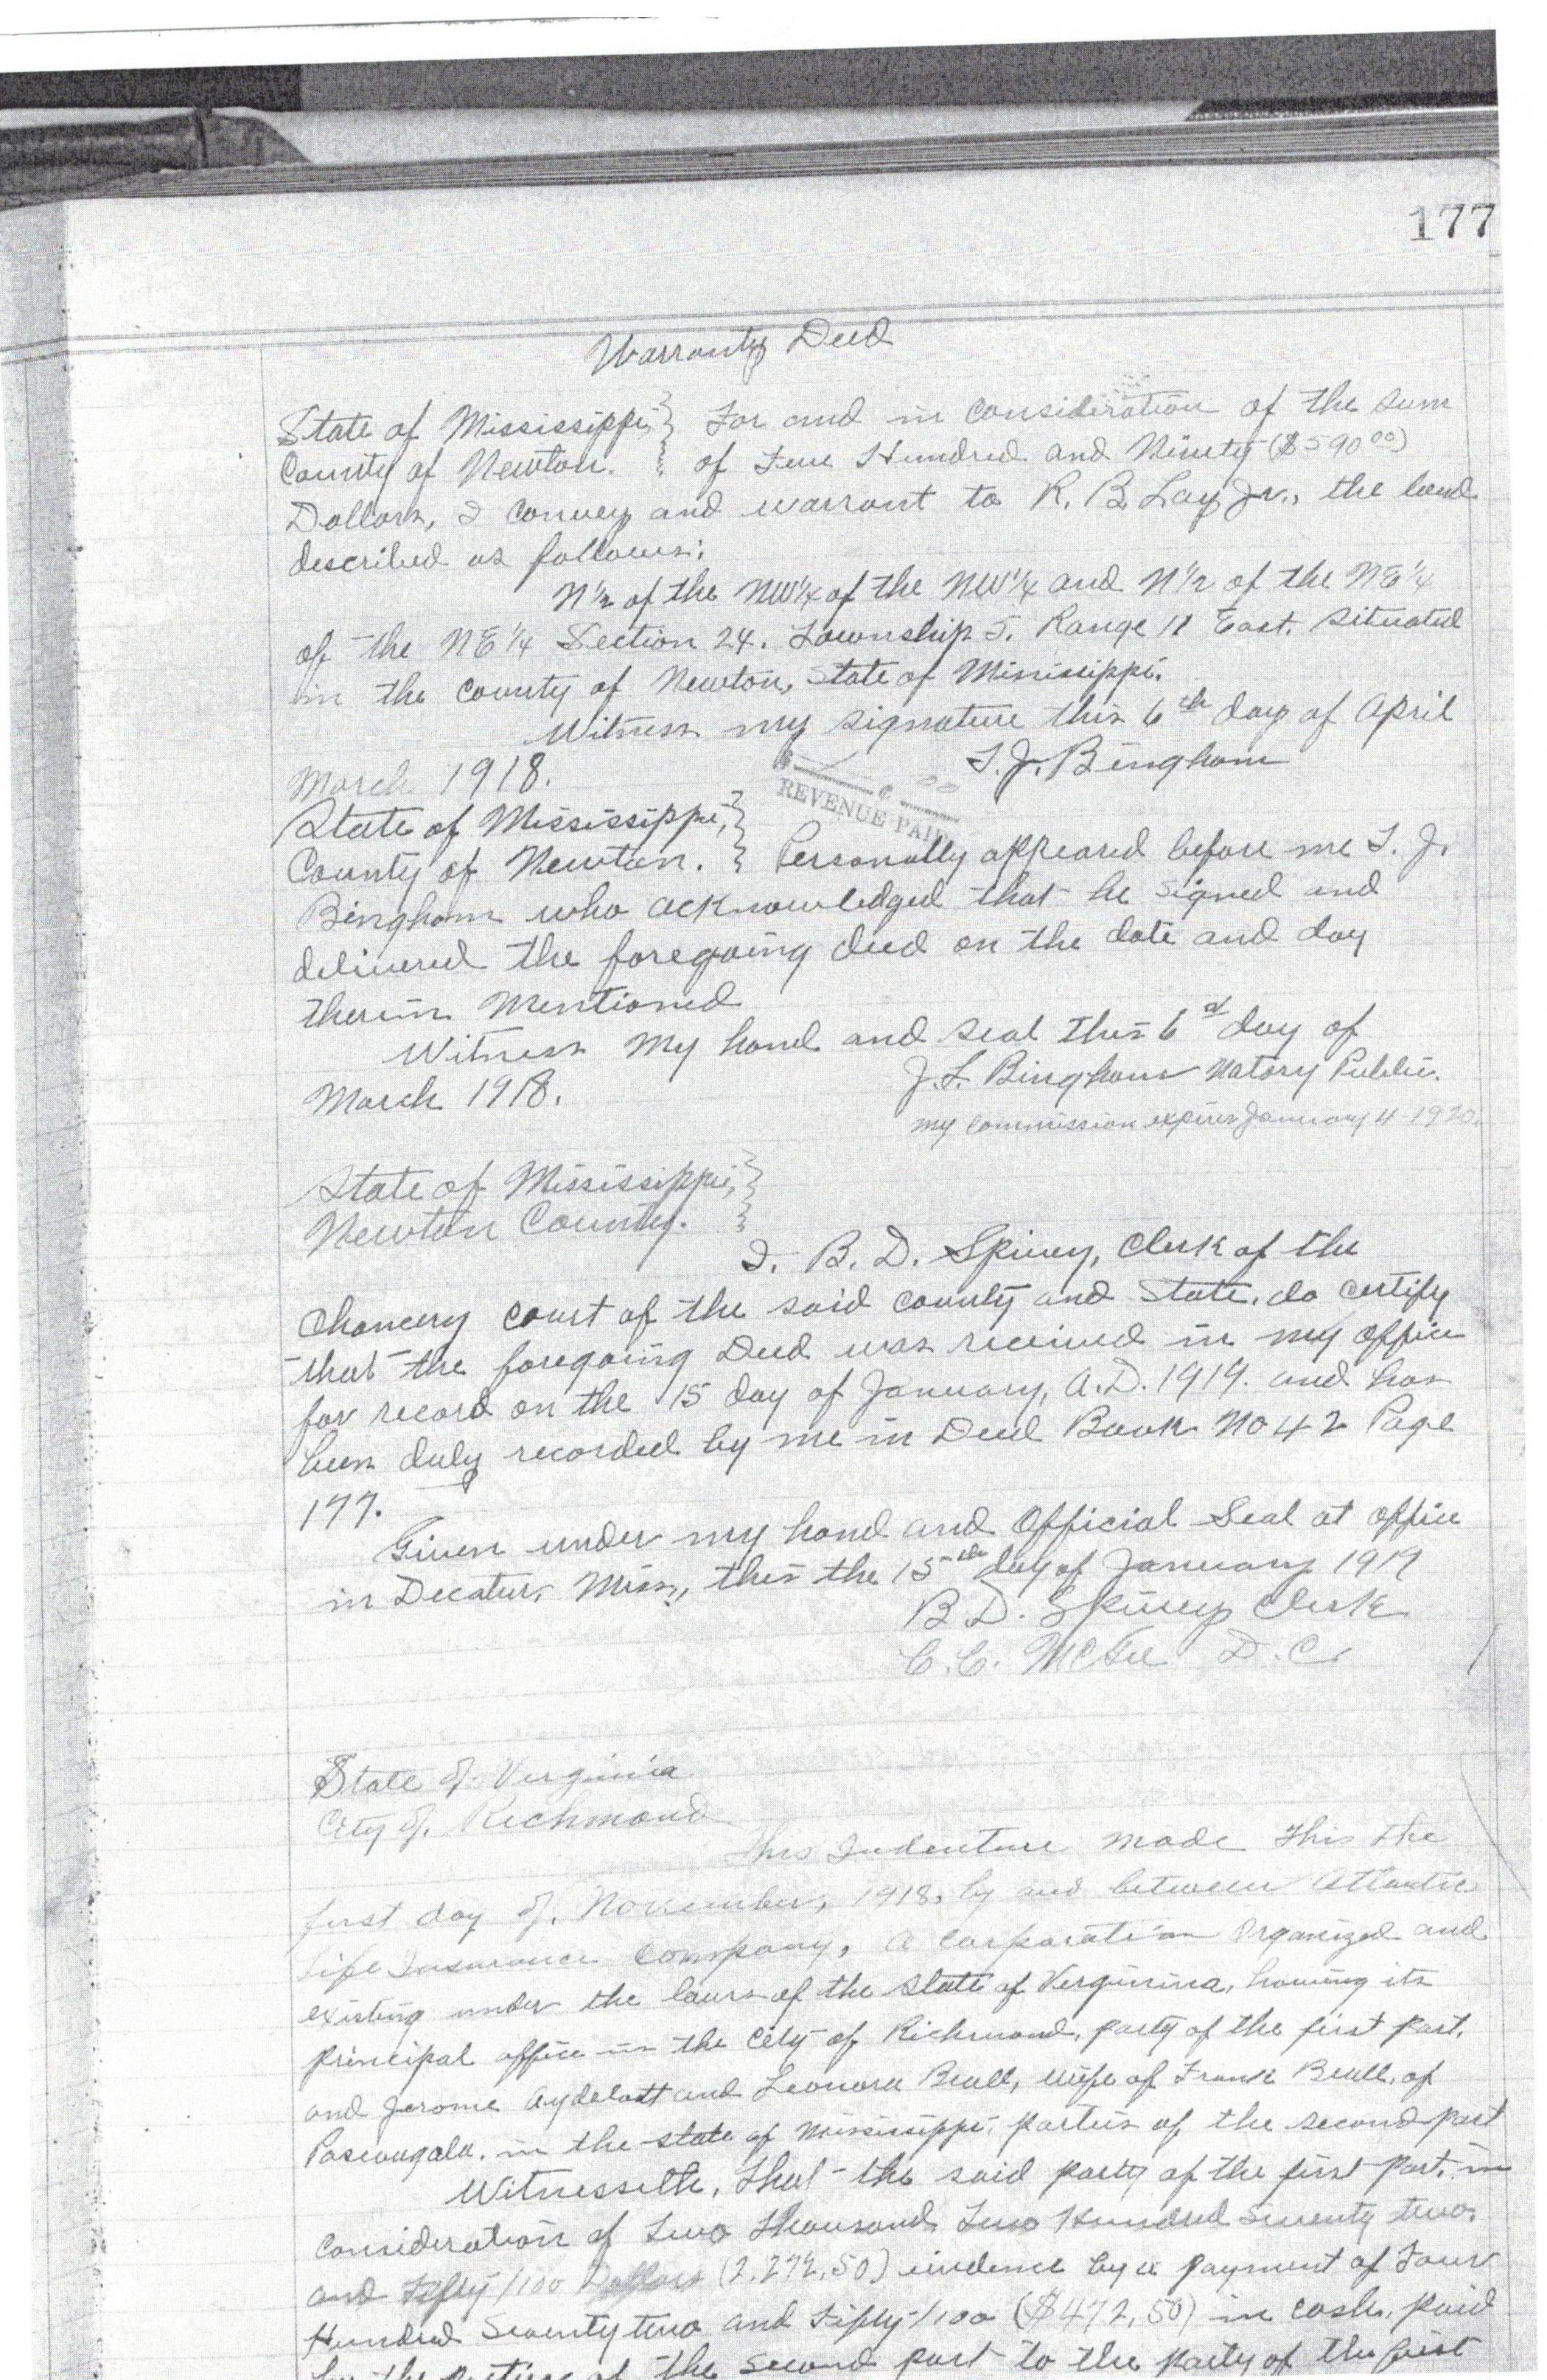 177
Warranty Deed
State of Mississippi, } For and in Consideration of the Sum
County of Newton. } of Five Hundred and Ninety ($590 00)
Dollars, I convey and warrant to R. B. Lay Jr., the land
described as follows:
N 1/2 of the NW 1/4 of the NW 1/4 and N 1/2 of the NE 1/4
of the NE 1/4 Section 24. Township 5. Range 11 East. Situated
in the County of Newton, State of Mississippi.
Witness my signature this 6th day of April
March 1918.
Bingham
REVENUE PAID
State of Mississippi, }
County of Newton. } Personally appeared before me
Bingham who acknowledged that he signed and
delivered the foregoing deed on the date and day
therein Mentioned
Witness My hand and seal this 6 day of
March 1918.
Bingham Notary Public.
my commission expires January 4 1920.
State of Mississippi, }
Newton County. }
I. B. D. Spivey, Clerk of the
Chancery Court of the said county and State, do certify
that the foregoing Deed was received in my office
for record on the 15 day of January, A.D. 1919. and has
been duly recorded by me in Deed Book No 42 Page
177.
Given under my hand and Official Seal at office
in Decatur, Miss., this the 15th day of January 1919
B. D. Spivey Clerk
D. C.
State of Verginia
City of. Richmond
This Indenture made this the
first day of. November, 1918, by and between Atlantic
Life Insurance Company, a Corporation Organized and
existing under the laws of the State of Verginina, having its
principal office in the City of Richmond, party of the first part,
and Jerome Aydelott and Leonora Beall, wife of Frank Beall, of
Pascougala. in the state of Mississippi, parties of the second part
Witnesseth, That the said party of the first part, in
consideration of Two Thousand Two Hundred Seventy two
and Fifty/100 Dollars (2,272,50) evidence by a payment of Four
Hundred Seventy two and Fifty/100 ($472,50) in cash, paid
by the parties of the second part to the party of the first